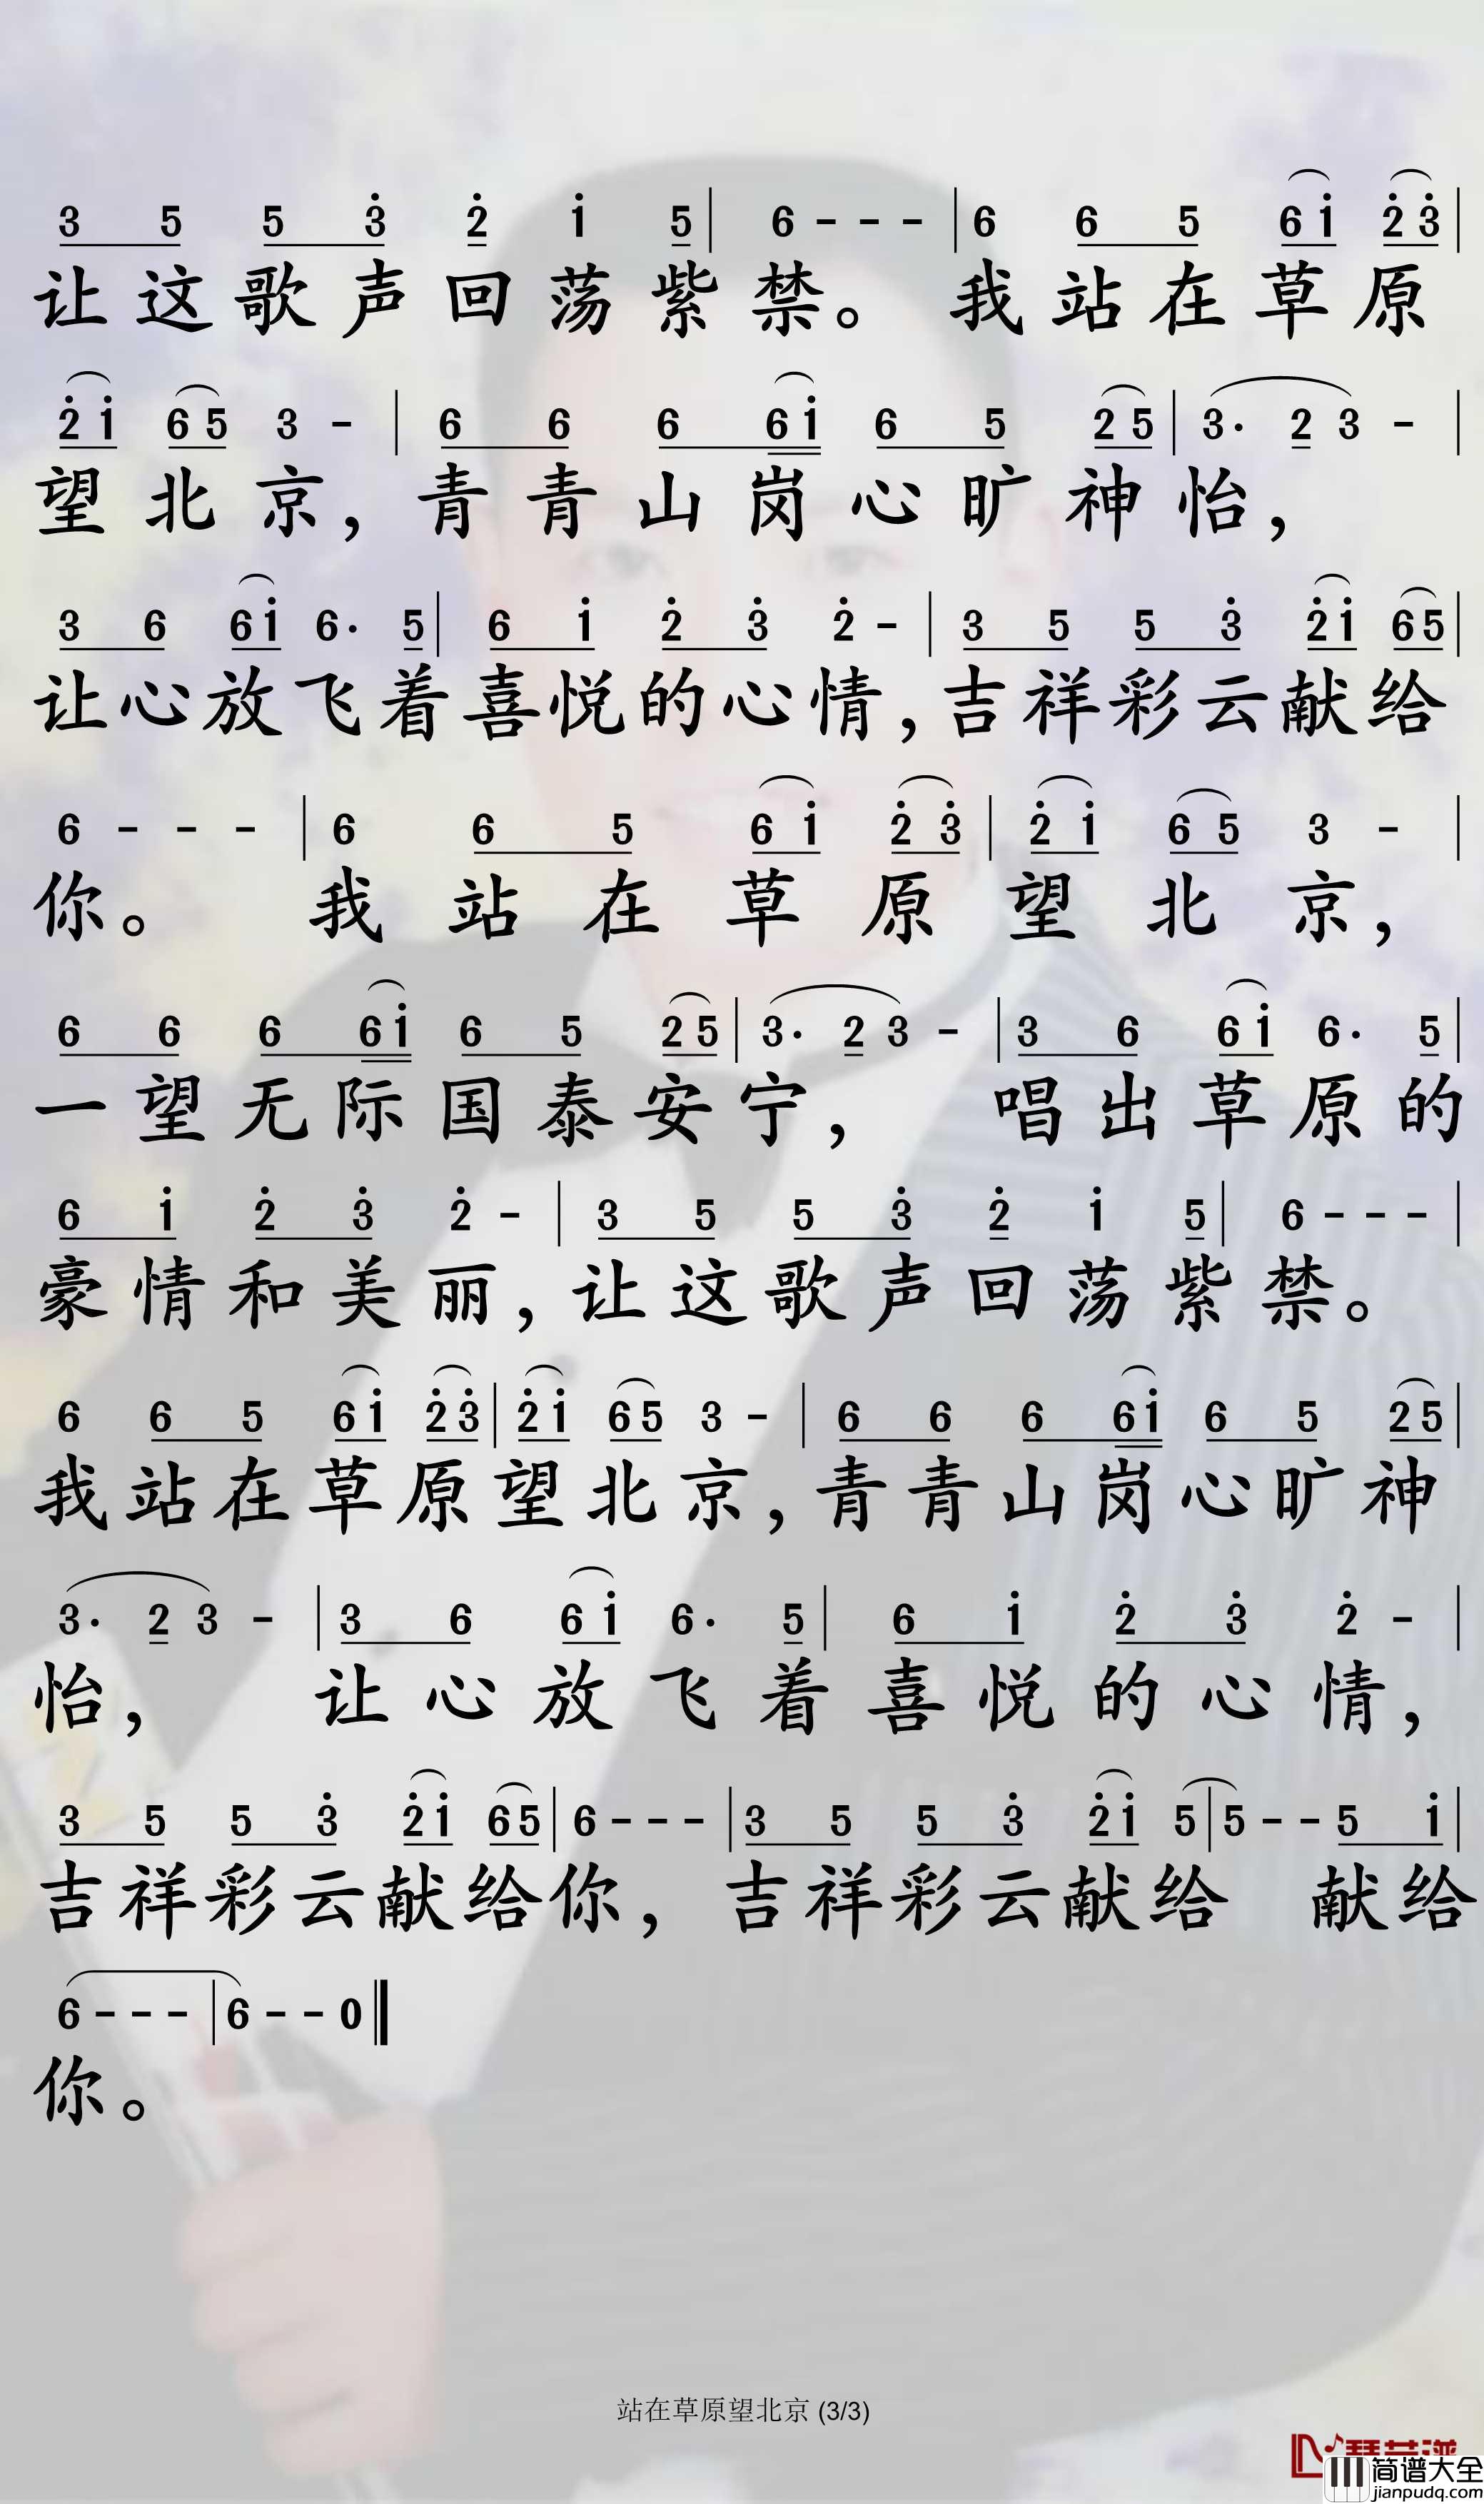 3 5 5 3̇ 2̇ 1̇ 5 | 6 - - - | 6 6 5 6 1̇ 2̇ 3̇ |
让这歌声回荡紫禁。 我站在草原
2̇ 1̇ 6 5 3 - | 6 6 6 6 1̇ 6 5 2 5 | 3· 2 3 - |
望北京，青青山岗心旷神怡，
3 6 6 1̇ 6· 5 | 6 1̇ 2̇ 3̇ 2̇ - | 3 5 5 3̇ 2̇ 1̇ 6 5 |
让心放飞着喜悦的心情，吉祥彩云献给
6 - - - | 6 6 5 6 1̇ 2̇ 3̇ | 2̇ 1̇ 6 5 3 - |
你。 我站在草原望北京，
6 6 6 6 1̇ 6 5 2 5 | 3· 2 3 - | 3 6 6 1̇ 6· 5 |
一望无际国泰安宁， 唱出草原的
6 1̇ 2̇ 3̇ 2̇ - | 3 5 5 3̇ 2̇ 1̇ 5 | 6 - - - |
豪情和美丽，让这歌声回荡紫禁。
6 6 5 6 1̇ 2̇ 3̇ | 2̇ 1̇ 6 5 3 - | 6 6 6 6 1̇ 6 5 2 5 |
我站在草原望北京，青青山岗心旷神
3· 2 3 - | 3 6 6 1̇ 6· 5 | 6 1̇ 2̇ 3̇ 2̇ - |
怡， 让心放飞着喜悦的心情，
3 5 5 3̇ 2̇ 1̇ 6 5 | 6 - - - | 3 5 5 3̇ 2̇ 1̇ 5 | 5 - - 5 1̇ |
吉祥彩云献给你，吉祥彩云献给 献给
6 - - - | 6 - - 0 ‖
你。
站在草原望北京 (3/3)
简谱大全
jianpudq.com